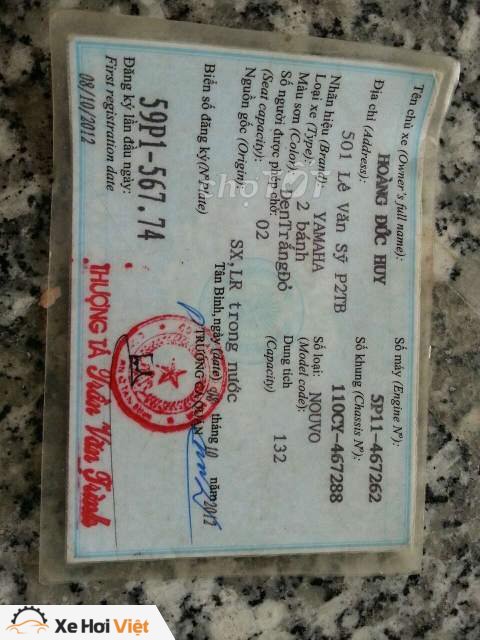 Tên chủ xe (Owner's full name):
HOÀNG ĐỨC HUY
Địa chỉ (Address):
501 Lê Văn Sỹ P2TB
Nhãn hiệu (Brand): YAMAHA
Số máy (Engine Nº): 5P11-467262
Số khung (Chassis Nº): 110CY-467288
Số loại: NOUVO
(Model code):
Loại xe (Type): 2 bánh
Màu sơn (Color): ĐenTrắngĐỏ
Dung tích 132
(Capacity)
Số người được phép chở: 02
(Seat capacity):
Nguồn gốc (Origin): SX,LR trong nước
Biển số đăng ký (Nº Plate)
59P1-567.74
Đăng ký lần đầu ngày:
First registration date
08/10/2012
Tân Bình, ngày (date) 08 tháng 10 năm 2012
THƯỢNG TÁ Trần Văn
chợ TỐT
Xe Hơi Việt